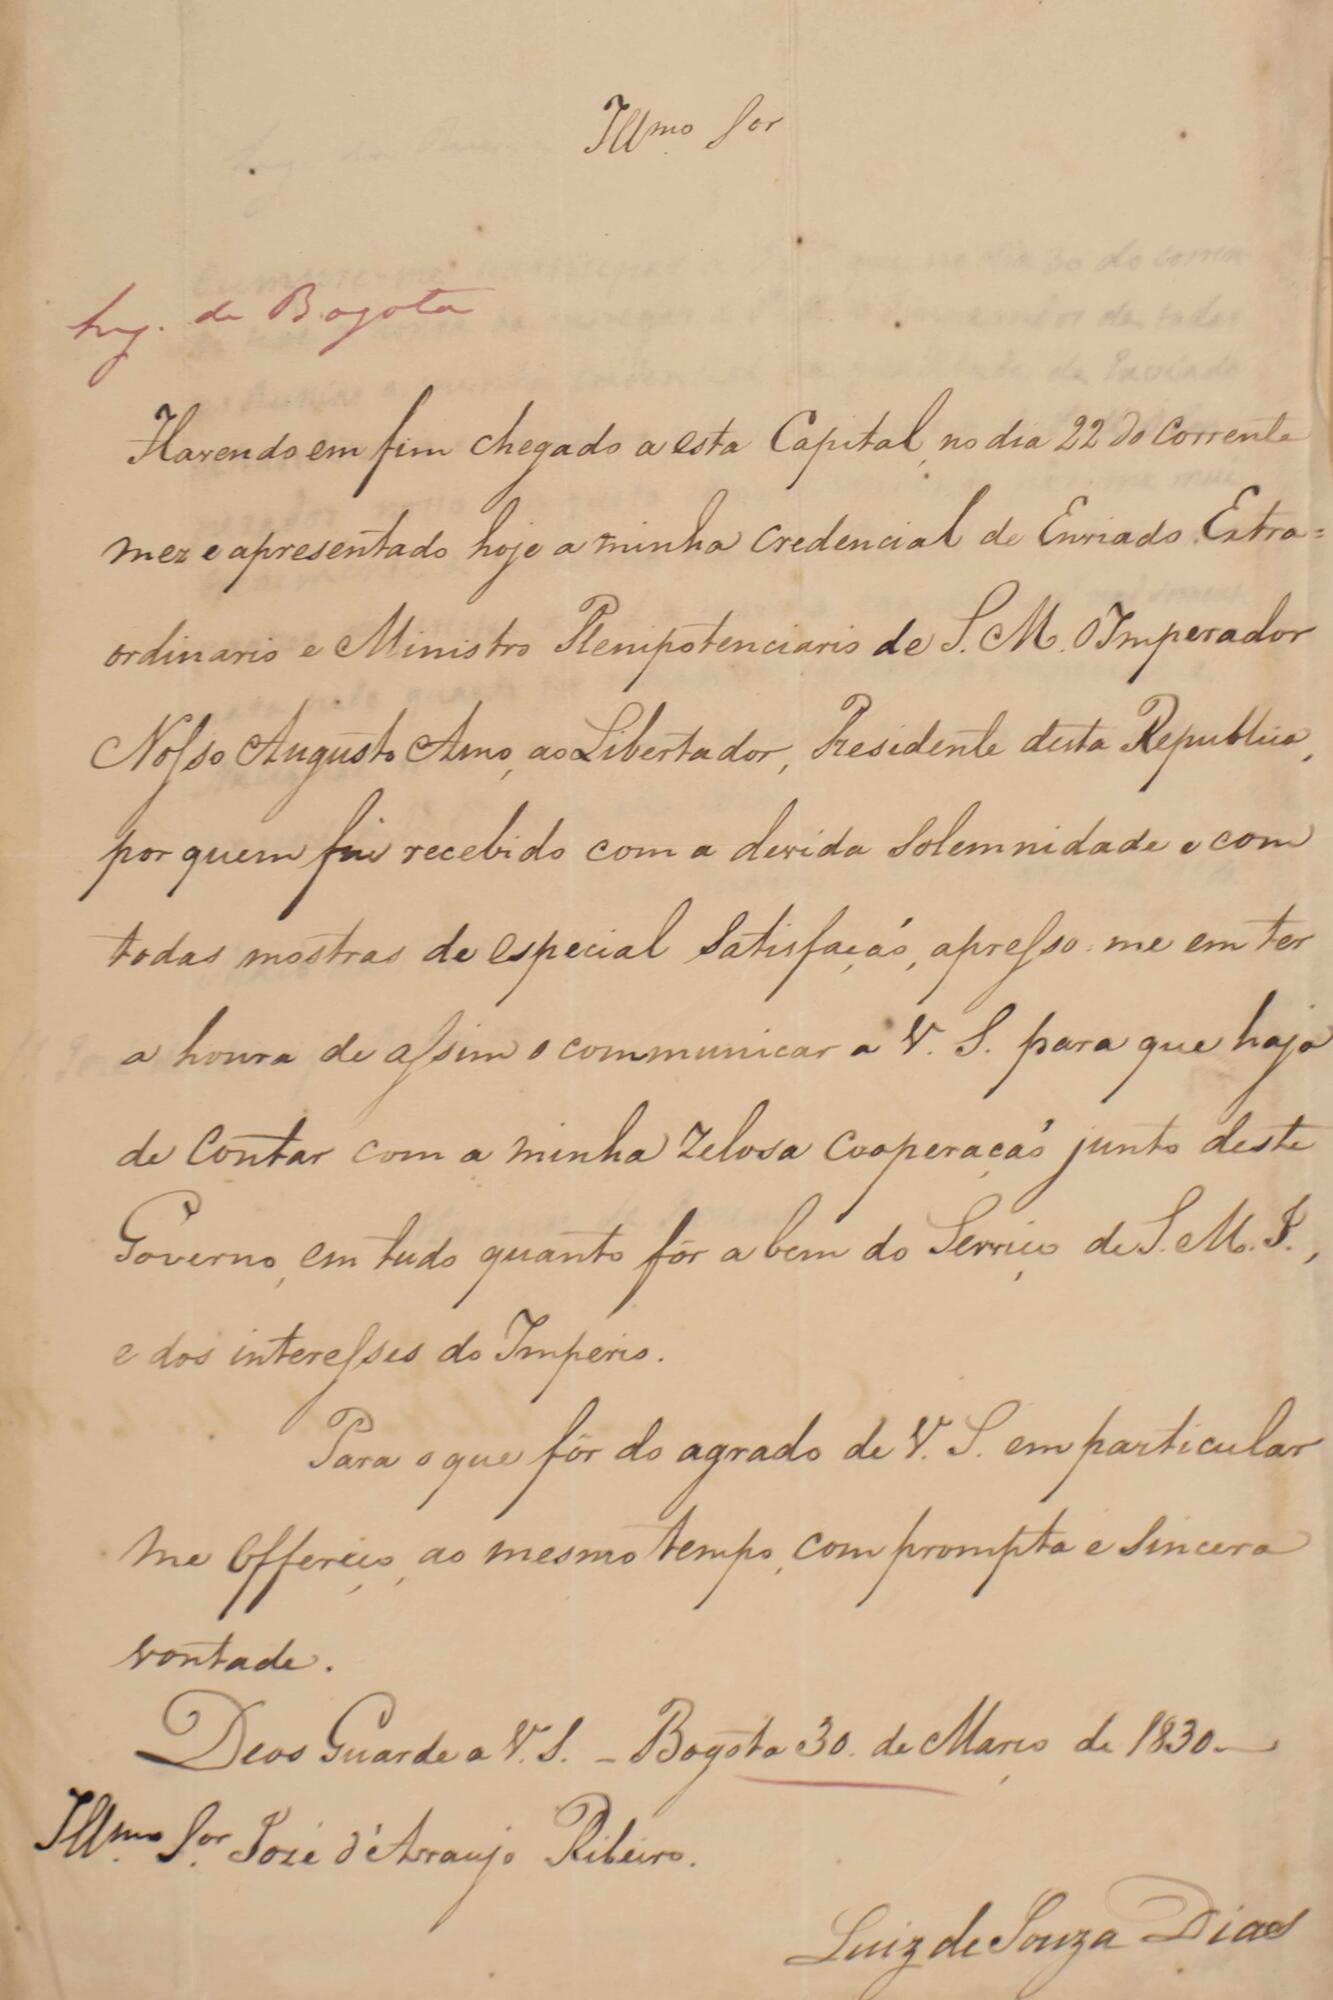 Illmo Sor
Leg. de Bogota
Havendo em fim chegado a esta Capital, no dia 22 do corrente
mez e apresentado hoje a minha credencial de Enviado Extra=
ordinario e Ministro Plenipotenciario de S. M. O Imperador
Nosso Augusto Amo, ao Libertador, Presidente desta Republica,
por quem fui recebido com a devida solemnidade e com
todas mostras de especial satisfaçaõ, apresso-me em ter
a honra de assim o communicar a V. S. para que haja
de contar com a minha zelosa cooperaçaõ junto deste
Governo, em tudo quanto fôr a bem do Serviço de S. M. I.,
e dos interesses do Imperio.
Para o que fôr do agrado de V. S. em particular
me offereço, ao mesmo tempo, com prompta e sincera
vontade.
Deos Guarde a V. S. – Bogota 30. de Março de 1830. –
Illmo Sor José d'Araujo Ribeiro.
Luiz de Souza Dias